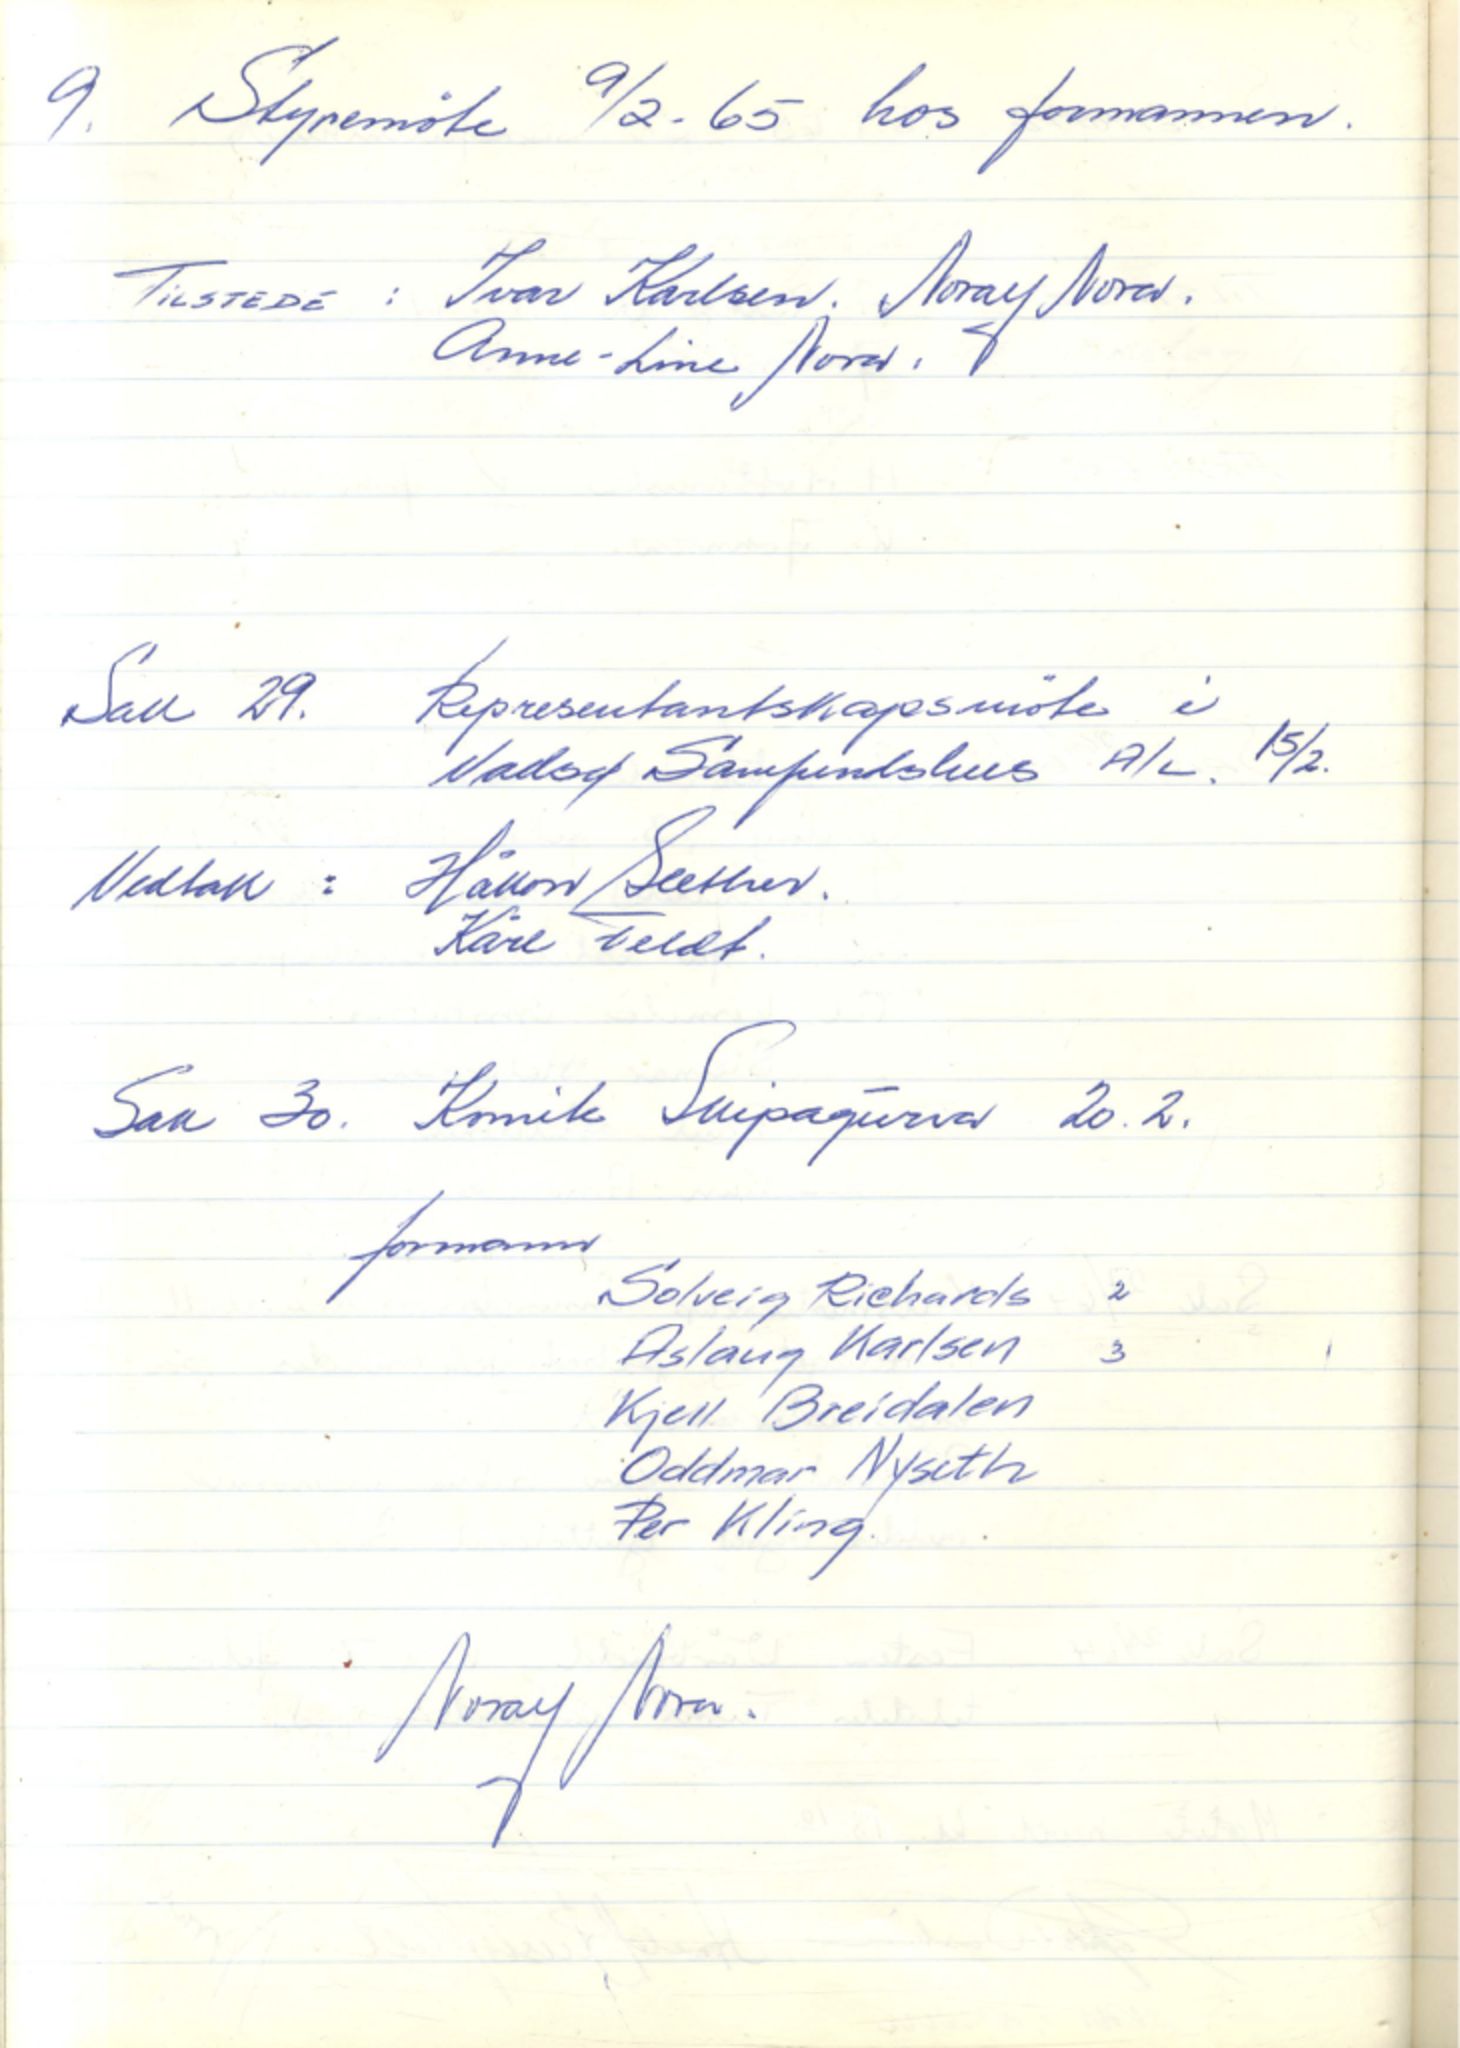 9. Styremöte 9/2-65 hos formannen.
TILSTEDE : Ivar Karlsen. Noralf Nora.
Anne-Line Nora.
Sak 29. Representantskapsmöte i
Vadsø Samfundshus A/L. 15/2.
Vedtak : Håkon Sæther.
Kåre Feldt.
Sak 30. Komite Skipagurra 20.2.
formann
Solveig Richards 2
Aslaug Karlsen 3
Kjell Breidalen
Oddmar Nyseth
Per Kling.
Noralf Nora.